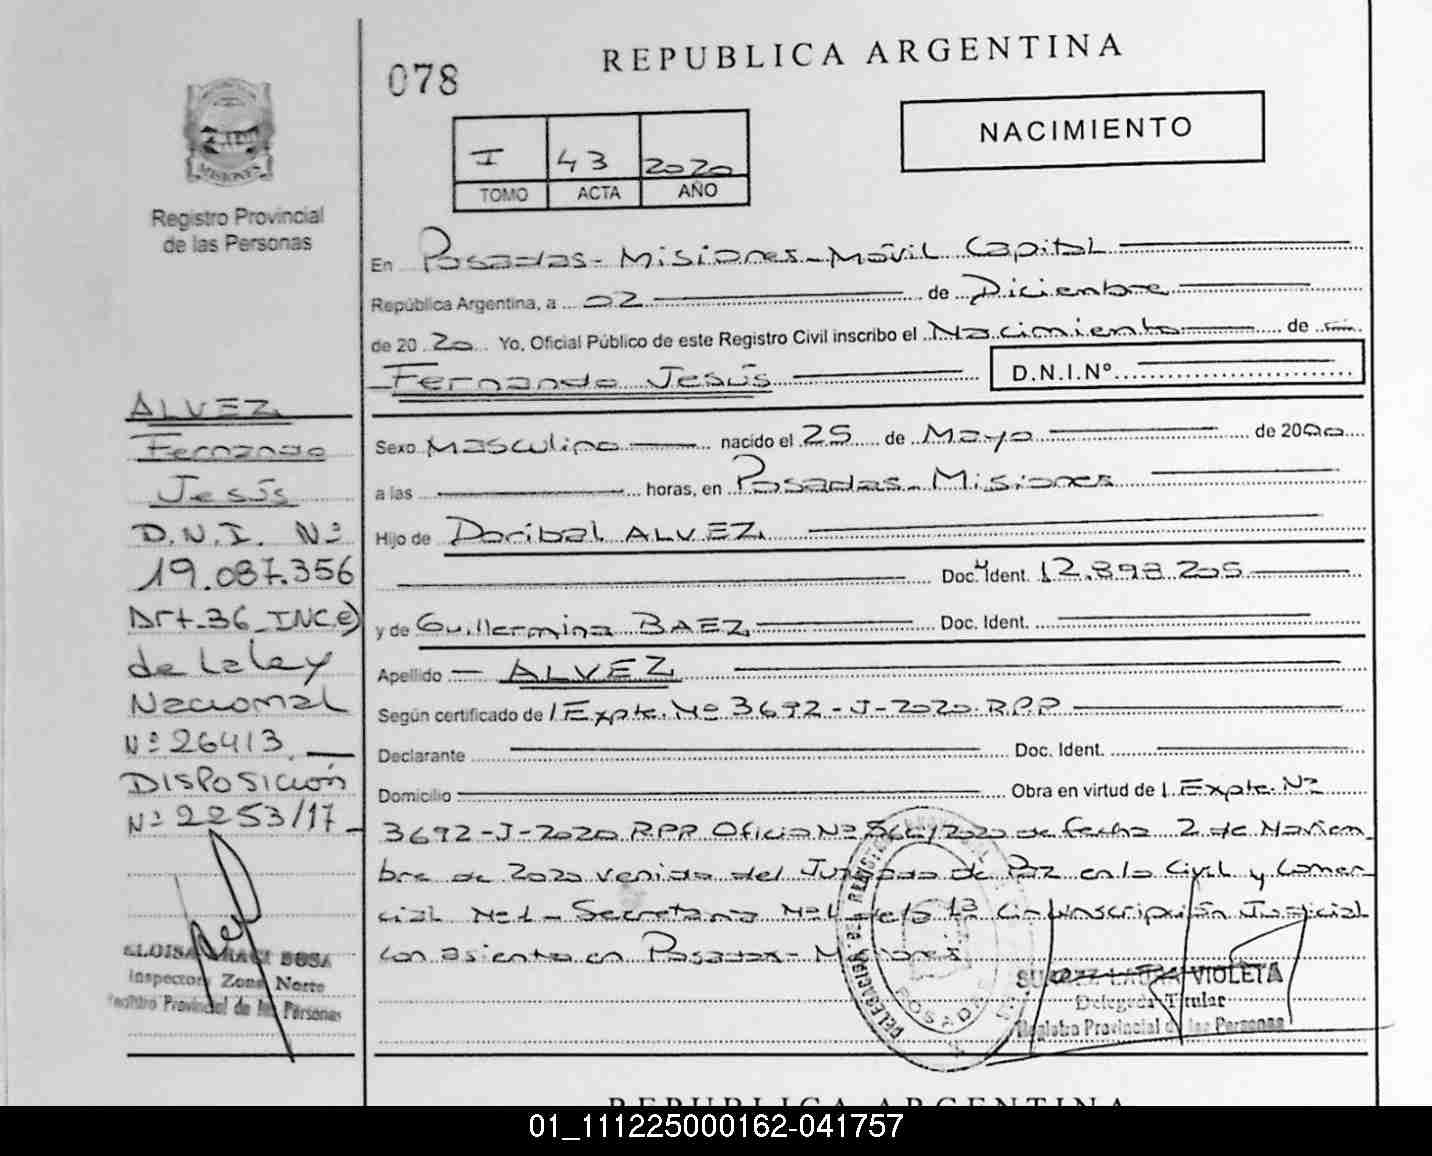 078
REPUBLICA ARGENTINA
NACIMIENTO
I 43 2020
TOMO ACTA AÑO
MISIONES
Registro Provincial
de las Personas
En Posadas - Misiones - Móvil Capital
República Argentina, a 02 de Diciembre
de 2020 Yo, Oficial Público de este Registro Civil inscribo el Nacimiento de
Fernando Jesús D.N.I.Nº
Sexo Masculino nacido el 25 de Mayo de 2000
a las horas, en Posadas - Misiones
Hijo de Doribal ALVEZ
Doc. Ident. 12.898.205
y de Guillermina BAEZ Doc. Ident.
Apellido ALVEZ
Según certificado de Expte. Nº 3692-J-2020 R.P.P
Declarante Doc. Ident.
Domicilio Obra en virtud de Expte. Nº
3692-J-2020 R.P.P Oficio Nº /2020 de fecha 2 de Noviem
bre de 2020 venido del Juzgado de Paz en lo Civil y Comer
cial Nº1 - Secretaria Nº1 de la 1ª Circunscripción Judicial
con asiento en Posadas - Misiones.
ALVEZ
Fernando
Jesús
D.N.I. Nº
19.087.356
Art. 36 INC e)
de La Ley
Nacional
Nº 26413
DISPOSICIÓN
Nº 2253/17
Inspectora Zona Norte
Registro Provincial de las Personas
LAURA VIOLETA
Delegada Titular
Registro Provincial de las Personas
DELEGACION
POSADAS
REPUBLICA ARGENTINA
01_111225000162-041757